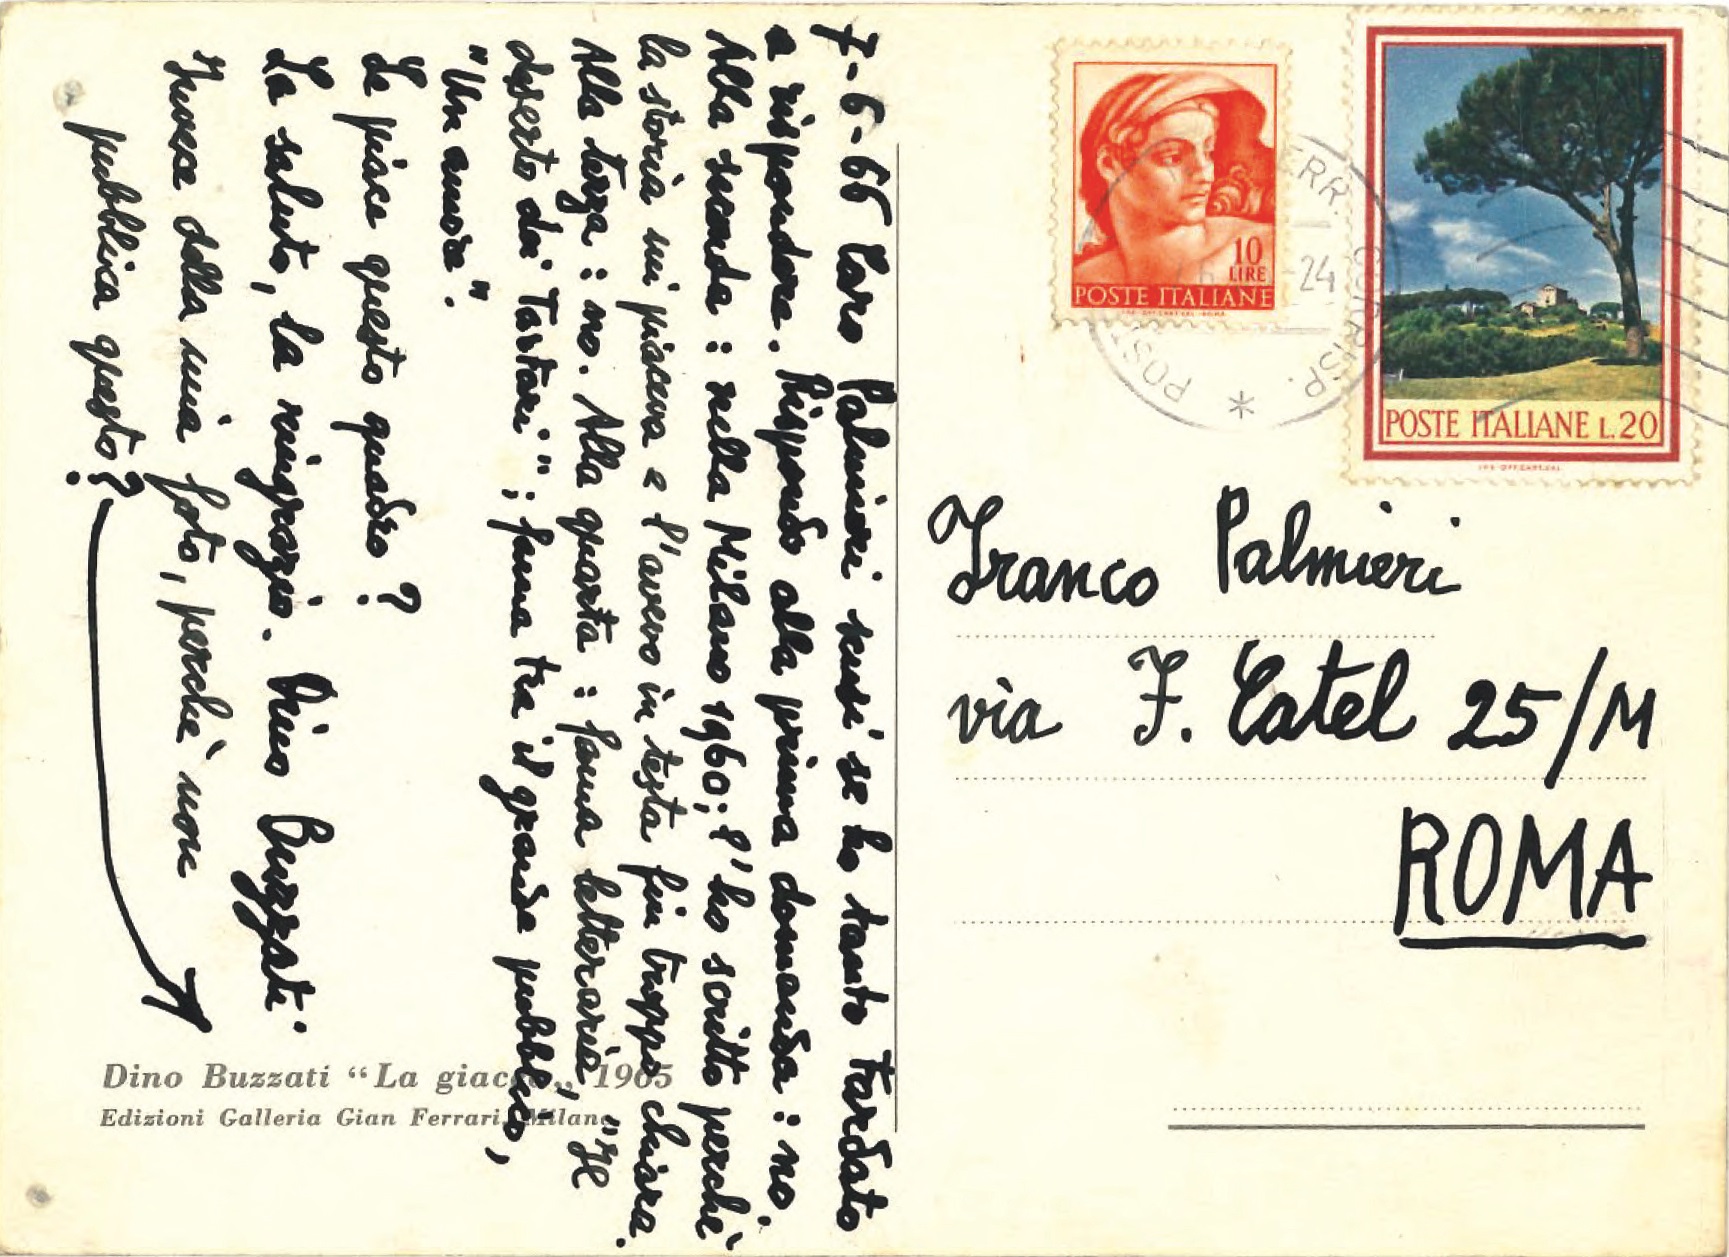 7-6-66 Caro Palmieri scusi se ho tanto tardato
a rispondere. Rispondo alla prima domanda: no.
Alla seconda: nella Milano 1960; l'ho scritto perchè
la storia mi piaceva e l'avevo in testa fin troppo chiara.
Alla terza: no. Alla quarta: fama letteraria, "Il
deserto dei Tartari"; fama tra il grande pubblico,
"Un amore".
Le piace questo quadro?
La saluto, la ringrazio. Dino Buzzati.
Invece della mia foto, perchè non
pubblica questo?
Dino Buzzati “La giacca„ 1965
Edizioni Galleria Gian Ferrari, Milano
10
LIRE
POSTE ITALIANE
IST. POL. STATO OFF. CART. VAL. ROMA
POSTE ITALIANE L.20
POST
FERR. CORRISP.
-24
*
Franco Palmieri
via F. Catel 25/M
ROMA